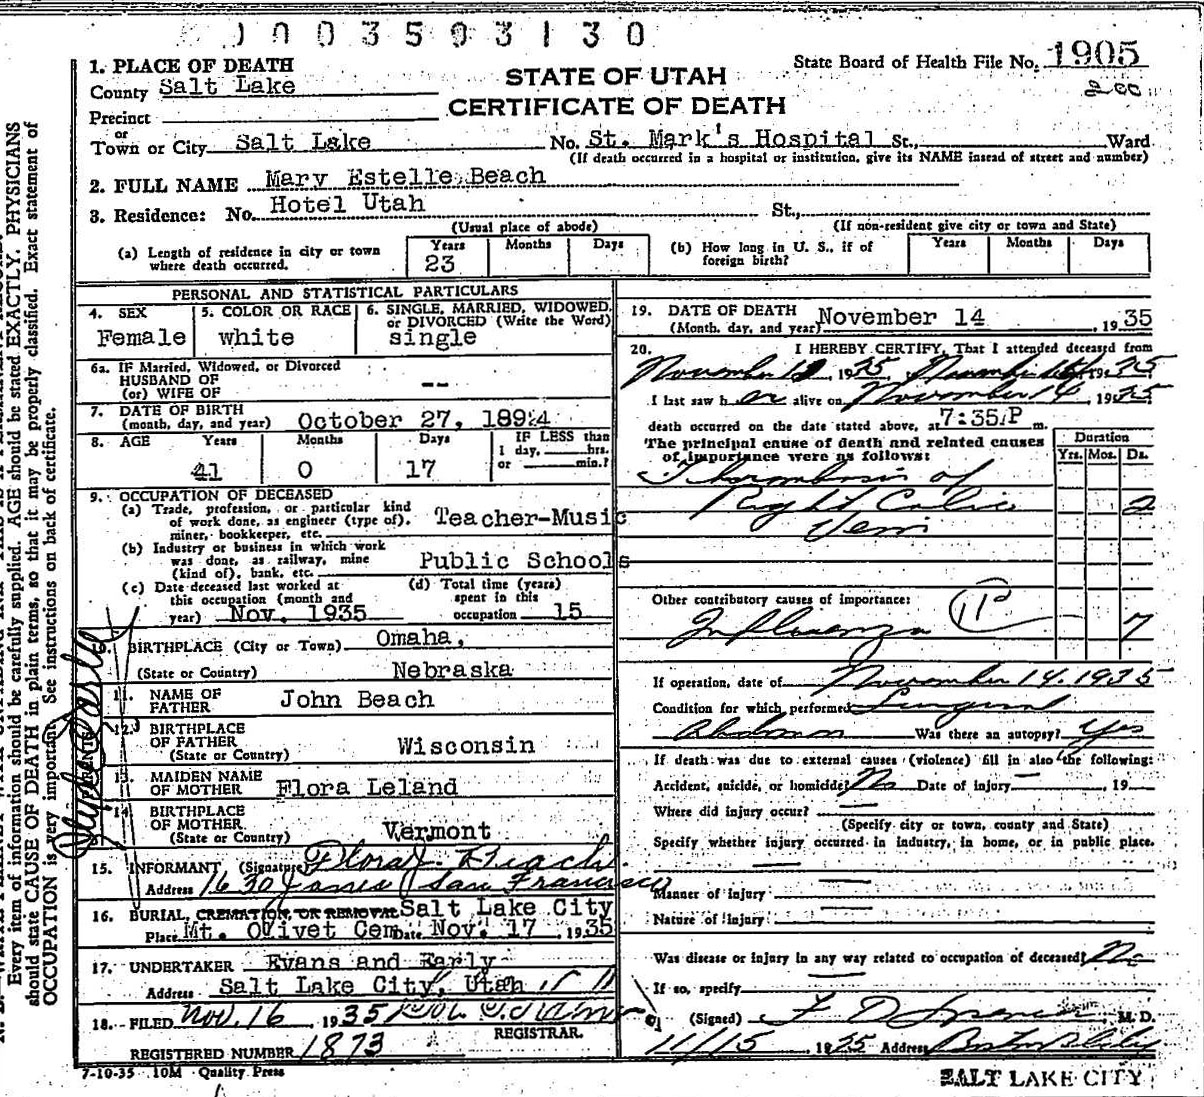 1003503130
State Board of Health File No. 1905
200
STATE OF UTAH
CERTIFICATE OF DEATH
1. PLACE OF DEATH
County Salt Lake
Precinct
or
Town or City Salt Lake No. St. Mark's Hospital St., Ward
(If death occurred in a hospital or institution, give its NAME insead of street and number)
2. FULL NAME Mary Estelle Beach
3. Residence: No. Hotel Utah St.,
(Usual place of abode) (If non-resident give city or town and State)
(a) Length of residence in city or town where death occurred. Years 23 Months Days
(b) How long in U. S., if of foreign birth? Years Months Days
PERSONAL AND STATISTICAL PARTICULARS
4. SEX Female
5. COLOR OR RACE white
6. SINGLE, MARRIED, WIDOWED, or DIVORCED (Write the Word) single
6a. IF Married, Widowed, or Divorced
HUSBAND OF
(or) WIFE OF --
7. DATE OF BIRTH
(month, day, and year) October 27, 1894
8. AGE Years 41 Months 0 Days 17
IF LESS than
1 day, hrs.
or min.?
9. OCCUPATION OF DECEASED
(a) Trade, profession, or particular kind
of work done, as engineer (type of).
miner, bookkeeper, etc. Teacher-Music
(b) Industry or business in which work
was done, as railway, mine
(kind of), bank, etc. Public Schools
(c) Date deceased last worked at
this occupation (month and
year) Nov. 1935
(d) Total time (years)
spent in this
occupation 15
BIRTHPLACE (City or Town) Omaha,
(State or Country) Nebraska
11. NAME OF
FATHER John Beach
12. BIRTHPLACE
OF FATHER
(State or Country) Wisconsin
13. MAIDEN NAME
OF MOTHER Flora Leland
14. BIRTHPLACE
OF MOTHER
(State or Country) Vermont
15. INFORMANT (Signature) Flora J. Beach
Address 1630 Jones San Francisco
16. BURIAL, CREMATION, OR REMOVAL Salt Lake City
Place Mt. Olivet Cem Date Nov. 17, 1935
17. UNDERTAKER Evans and Early
Address Salt Lake City, Utah
18. FILED Nov. 16, 1935
REGISTRAR.
REGISTERED NUMBER 1873
7-10-35 10M Quality Press
19. DATE OF DEATH
(Month, day, and year) November 14, 1935
20. I HEREBY CERTIFY, That I attended deceased from
November 12, 1935, to November 1935
I last saw her alive on November 14, 1935
death occurred on the date stated above, at 7:35 P m.
The principal cause of death and related causes
of importance were as follows:
Duration
Yrs. Mos. Ds.
Thrombosis of
Right Colic 2
Vein
Other contributory causes of importance:
Influenza 7
If operation, date of November 14, 1935
Condition for which performed Surgical
Abdomen Was there an autopsy? Yes
If death was due to external causes (violence) fill in also the following:
Accident, suicide, or homicide? No Date of injury , 19
Where did injury occur?
(Specify city or town, county and State)
Specify whether injury occurred in industry, in home, or in public place.
Manner of injury
Nature of injury
Was disease or injury in any way related to occupation of deceased? No
If so, specify
(Signed) M. D.
11/15, 1935 Address Boston Bldg
SALT LAKE CITY
Every item of information should be carefully supplied. AGE should be stated EXACTLY. PHYSICIANS
should state CAUSE OF DEATH in plain terms, so that it may be properly classified. Exact statement of
OCCUPATION is very important. See instructions on back of certificate.